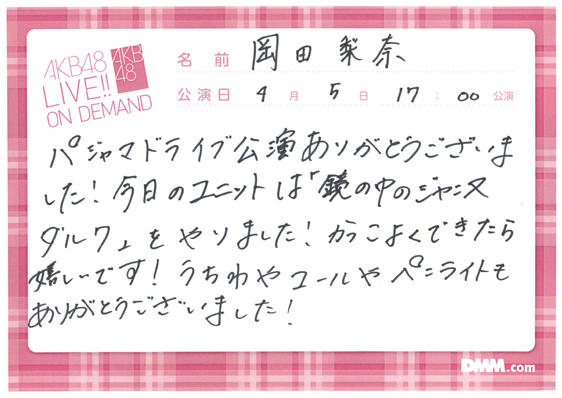 AKB48
LIVE!!
ON DEMAND
AKB
48
名前 岡田梨奈
公演日 4月5日 17:00公演
パジャマドライブ公演ありがとうございま
した!今日のユニットは「鏡の中のジャンヌ
ダルク」をやりました!かっこよくできたら
嬉しいです!うちわやコールやペンライトも
ありがとうございました!
DMM.com